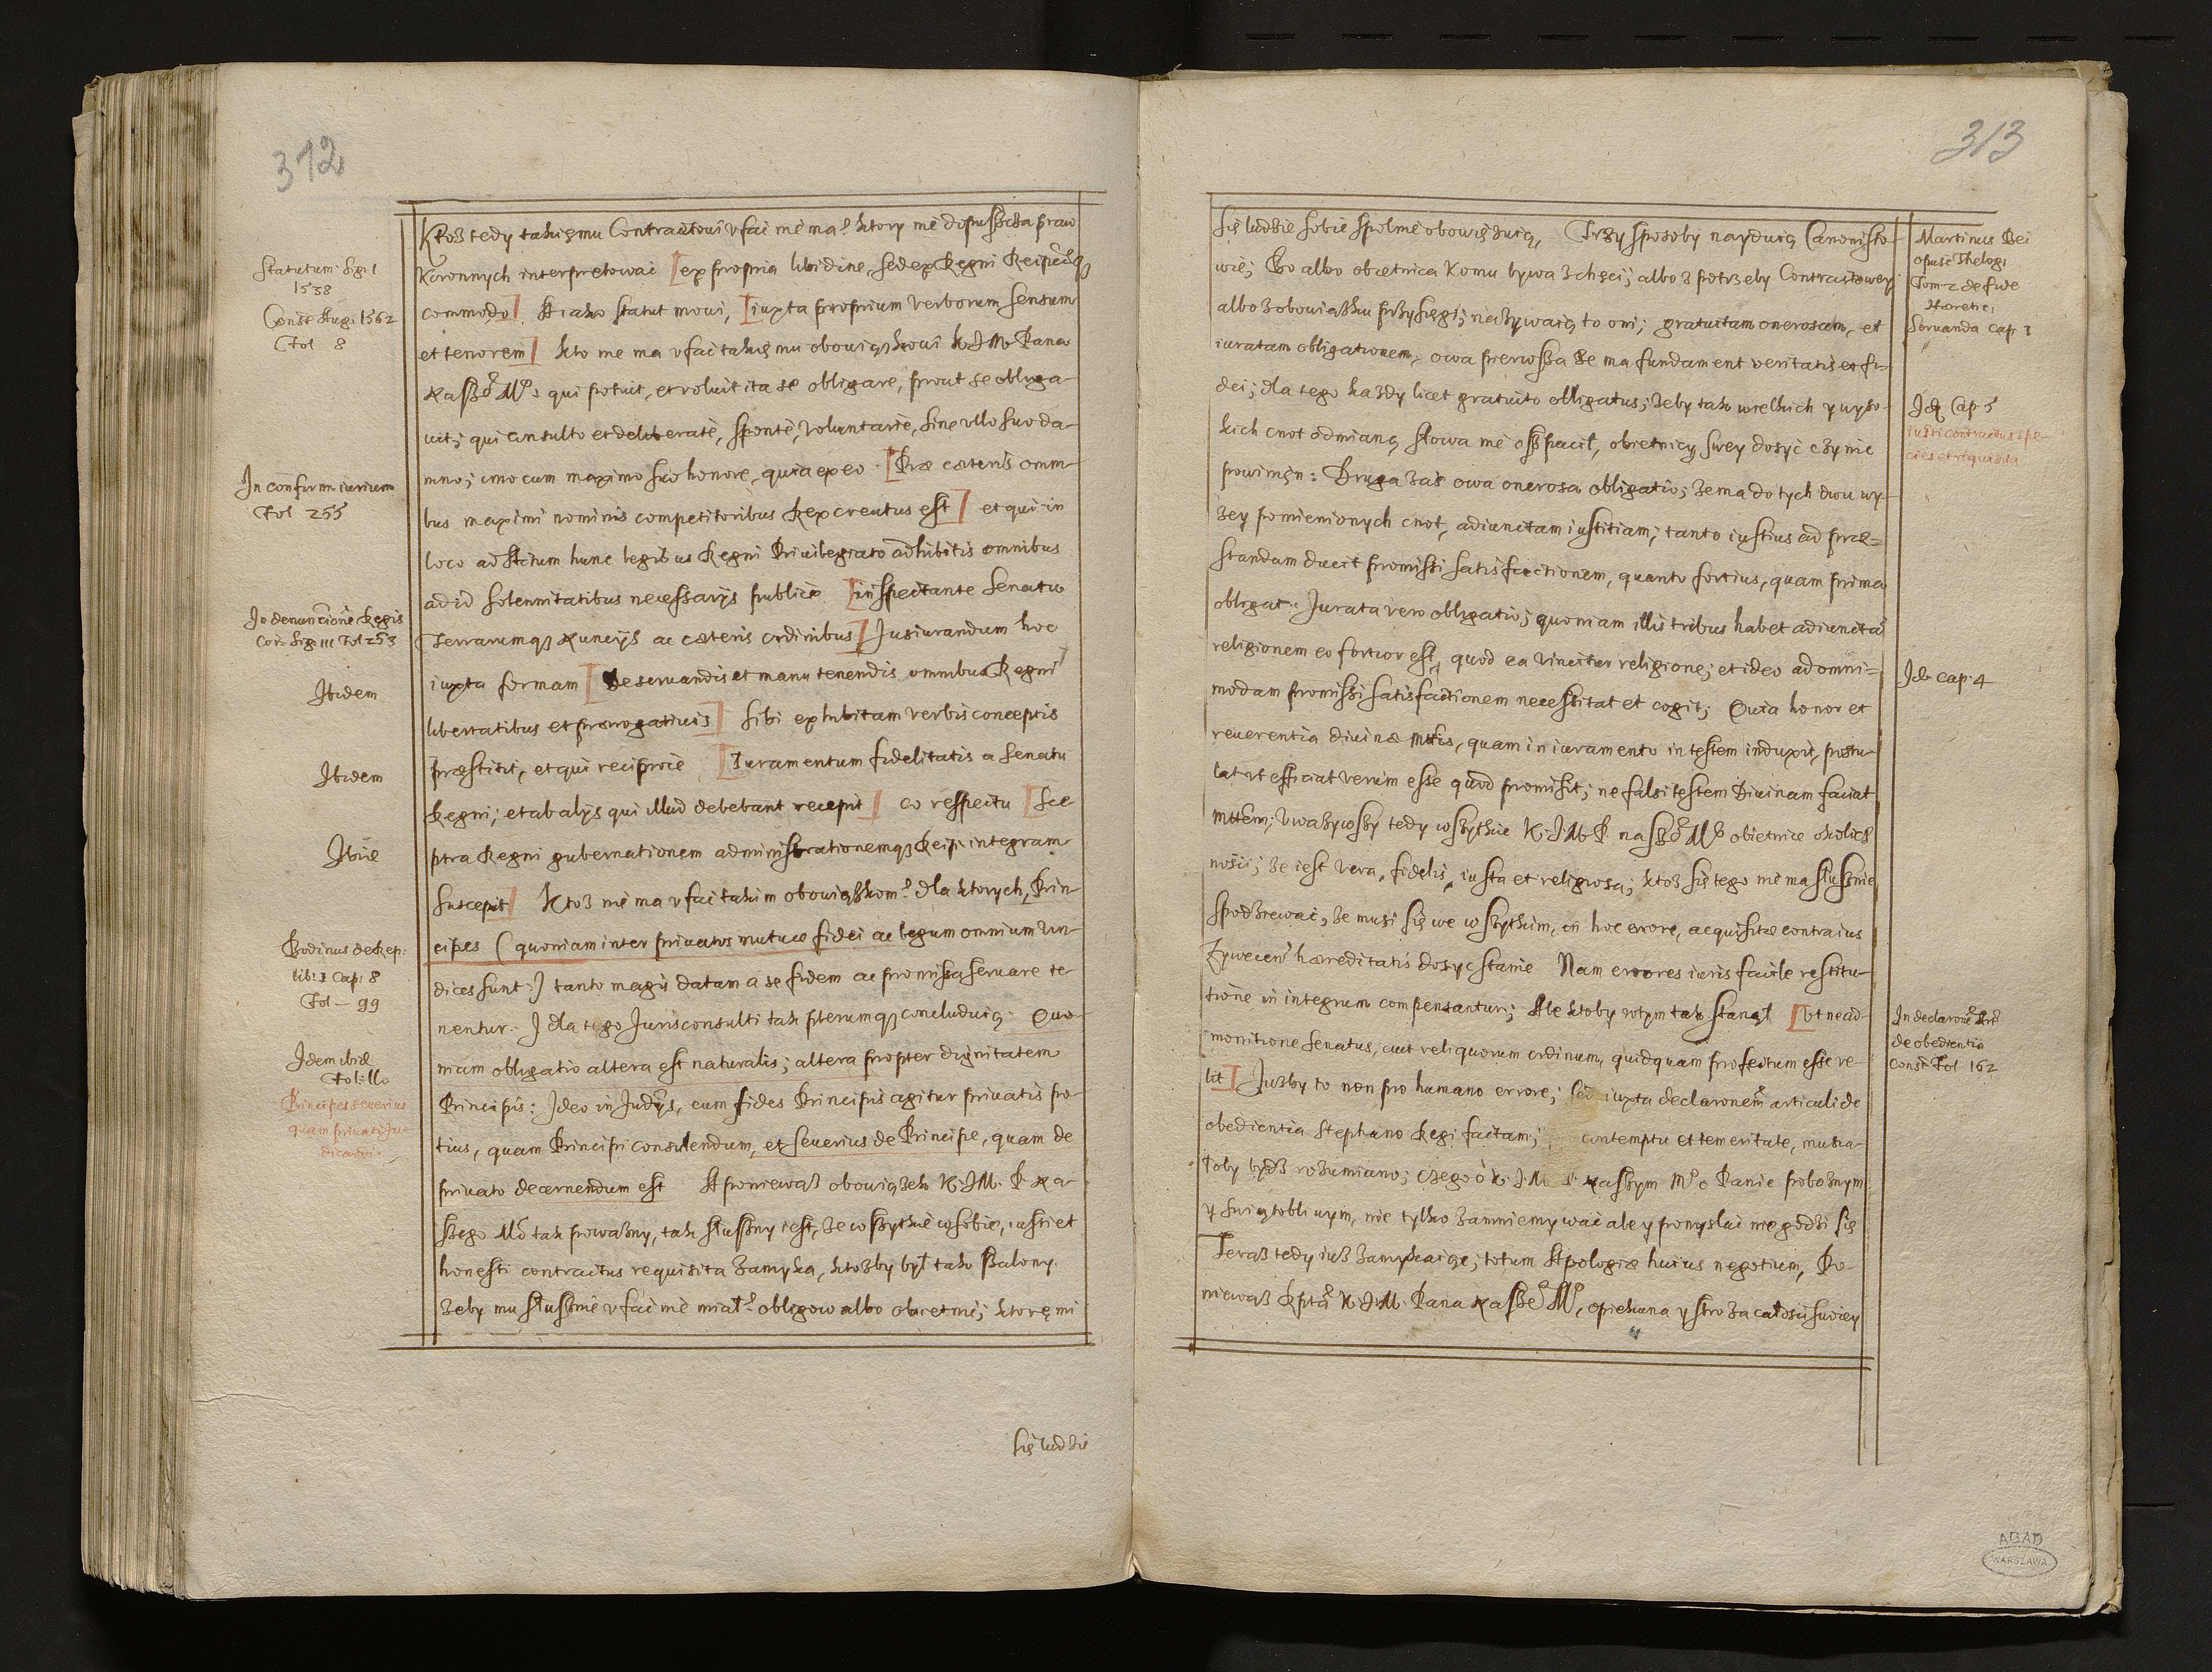 312
Statutum Sig: I
1538
Const: Aug: 1562
Fol 8
In confirm: iurium
Fol 255
In denuncione Regis
Cor: Sig: III Fol 253
Ibidem
Ibidem
Ibidē
Bodinus de Rep:
lib: I Cap: 8
Fol — 99
Idem ibidē
Fol: 110
Principes seuerius
quam priuati Iu-
dicandi.
Ktoz tedy takięmu Contractowi vfać nie ma? ktory nie dopuszcza praw
Koronnych interpretować [ex propria libidine, sed ex Regni Reipcęq3
commodo] A iako statut mowi, [iuxta proprium verborum sensum
et tenorem] kto nie ma vfać takięmu obowiązkowi K.J.M. Pana
Naszeo Mo: qui potuit, et voluit ita se obligare, prout se obliga-
uit; qui consulto et deliberatè, spontè, voluntariè, sine vllo suo da-
mno; imo cum maximo suo honore, quia ex eo [Præ cæteris omni-
bus maximi nominis competitoribus Rex creatus est] et qui in
loco ad Actum hunc legibus Regni Priuilegiato adhibitis omnibus
ad id solennitatibus necessarijs publicè [inspectante Senatu
Terrarumq3 Nuncijs ac cæteris ordinibus] Jusiurandum hoc
iuxta formam [De seruandis et manu tenendis omnibus Regni
libertatibus et prærogatiuis] sibi exhibitam verbis conceptis
præstitit, et qui reciprocè [Iuramentum fidelitatis a Senatu
Regni; et ab alijs qui illud debebant recepit] eo respectu [Sce-
ptra Regni gubernationem administrationemq3 Reip: integram
suscepit] Ktoz nie ma vfać takim obowiązkom? dla ktorych, Prin-
cipes (quoniam inter priuatos mutuæ fidei ac legum omnium vin-
dices sunt:) tanto magis datam a se fidem ac promissa seruare te-
nentur. J dla tego Jurisconsulti tak pterumq3 concluduią. Quo-
niam obligatio altera est naturalis; altera propter dignitatem
Principis: Ideo in Judicijs, cum fides Principis agitur priuatis po-
tius, quam Principi consulendum, et seuerius de Principe, quam de
priuato decernendum est A poniewasz obowiązek K.J.M. P. Na-
szego Mo tak powazny, tak słuszny iest, ze wszytkie w sobie, iusti et
honesti contractus requisita zamyka, ktozby był tak szalony.
zeby mu słusznie vfać nie miał? obligow albo obietnic; ktoręmi
się ludzie
313
się ludzie sobie spolnie obowięzuią, Trzy sposoby nayduią Canonisto-
wie; Bo albo obietnica Komu bywa z chęci; albo z potrzeby Contractowey
albo z obowiązku przysięgi; nazywaią to oni; gratuitam onerosam, et
iuratam obligationem, owa pierwsza ze ma fundament veritatis et fi-
dei; dla tego kazdy licet gratuito obligatus; zeby tak wielkich y wyso-
kich cnot odmianą słowa nie oszpacił, obietnicy swey dosyć czynic
powinięn: Druga zaś owa onerosa obligatio; ze ma do tych dwu wy-
zey pomienionych cnot, adiunctam iustitiam; tanto iustius ad præ-
standam ducit promissi satisfactionem, quanto fortius, quam prima
obligat. Jurata vero obligatio; quoniam illis tribus habet adiunctā
religionem eo fortior est, quod ea vincitur religione; et ideo ad omni-
modam promissi satisfactionem necessitat et cogit; Quia honor et
reuerentia diuinæ mttis, quam in iuramento in testem induxit, postu-
lat vt efficiat verum esse quod promisit; ne falsi testem Diuinam faciat
mttem; Vwazywszy tedy wszytkie K.J.M.P. naszeo Mo obietnice okolicz
ności; ze iest vera, fidelis, iusta et religiosa; ktoz się tego nie ma słusznie
spodziewać, ze musi się we wszytkim, in hoc errore, acquisitæ contra ius
Zywecen hæreditatis dosyc stanie Nam errores iuris facile restitu-
tione in integrum compensantur; Ale ktoby w tym tak stanął [Vt nec ad-
monitione Senatus, aut reliquorum ordinum, quidquam profectum esse ve-
lit] Juzby to non pro humano errore; sed iuxta declaronem articuli de
obedientia Stephano Regi factam; contemptu et temeritate, musia-
łoby bydz rozumiano; czego o K.J.M. P. Naszym Mo o Panie poboznym
y świątobliwym, nie tylko zamniemywać ale y pomyslać nie godzi się
Teraz tedy iuz zamykaiąc; totum Apologiæ huius negotium, Po-
niewasz Rptā K.J.M. Pana Naszeo Mo, opiekuna y stroza całości swoiey
Martinus Bei
opusc Theolog:
Tom 2 de fide
Hæretic:
seruanda Cap: 3
Idē Cap: 5
iusti contractus spe-
cies et requisita
Idē cap: 4
In declarone Art:
de obedientia
const: Fol 162
AGAD
WARSZAWA